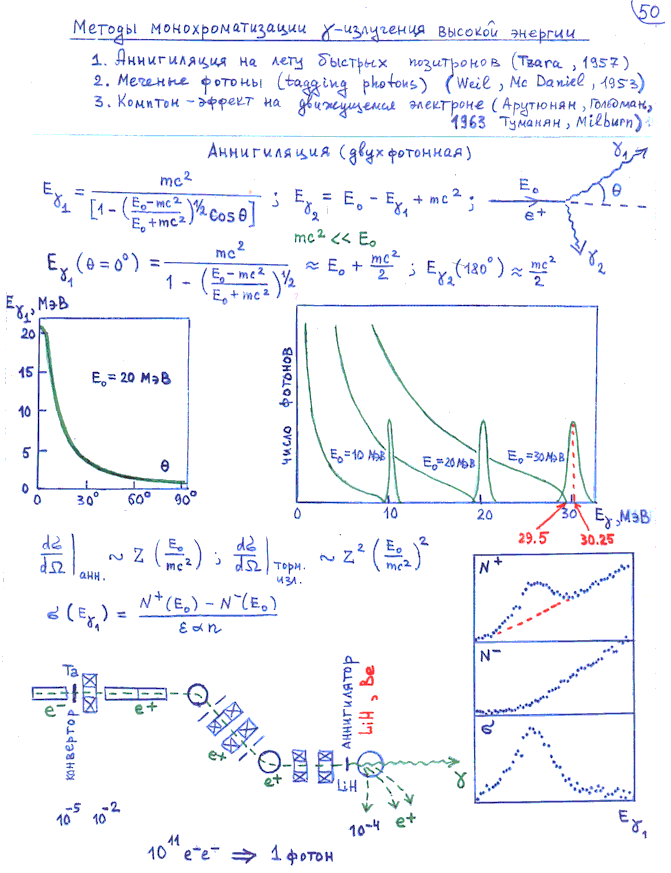 50
Методы монохроматизации γ-излучения высокой энергии
1. Аннигиляция на лету быстрых позитронов (Tzara, 1957)
2. Меченые фотоны (tagging photons) (Weil, Mc Daniel, 1953)
3. Комптон-эффект на движущемся электроне (Арутюнян, Гольдман,
1963 Туманян, Milburn)
Аннигиляция (двухфотонная)
Eγ1 = mc² / [1 - ((E₀-mc²)/(E₀+mc²))^1/2 cosθ] ; Eγ2 = E₀ - Eγ1 + mc² ;
E₀ e+ θ γ1 γ2
mc² << E₀
Eγ1 (θ=0°) = mc² / (1 - ((E₀-mc²)/(E₀+mc²))^1/2) ≈ E₀ + mc²/2 ; Eγ2 (180°) ≈ mc²/2
Eγ1, МэВ
20
15
10
5
0
E₀ = 20 МэВ
θ
0 30° 60° 90°
число фотонов
E₀=10 МэВ E₀=20 МэВ E₀=30 МэВ
0 10 20 30 Eγ, МэВ
29.5 30.25
dσ/dΩ|анн. ~ Z (E₀/mc²) ; dσ/dΩ|торм. изл. ~ Z² (E₀/mc²)²
σ(Eγ1) = (N⁺(E₀) - N⁻(E₀)) / (ε α n)
N⁺
N⁻
σ
Eγ1
Ta
e⁻ e⁺
конвертор
e⁺
e⁺
аннигилятор
LiH, Be
LiH
γ
e⁺
10⁻⁵ 10⁻²
10⁻⁴
10¹¹ e⁻e⁻ ⇒ 1 фотон